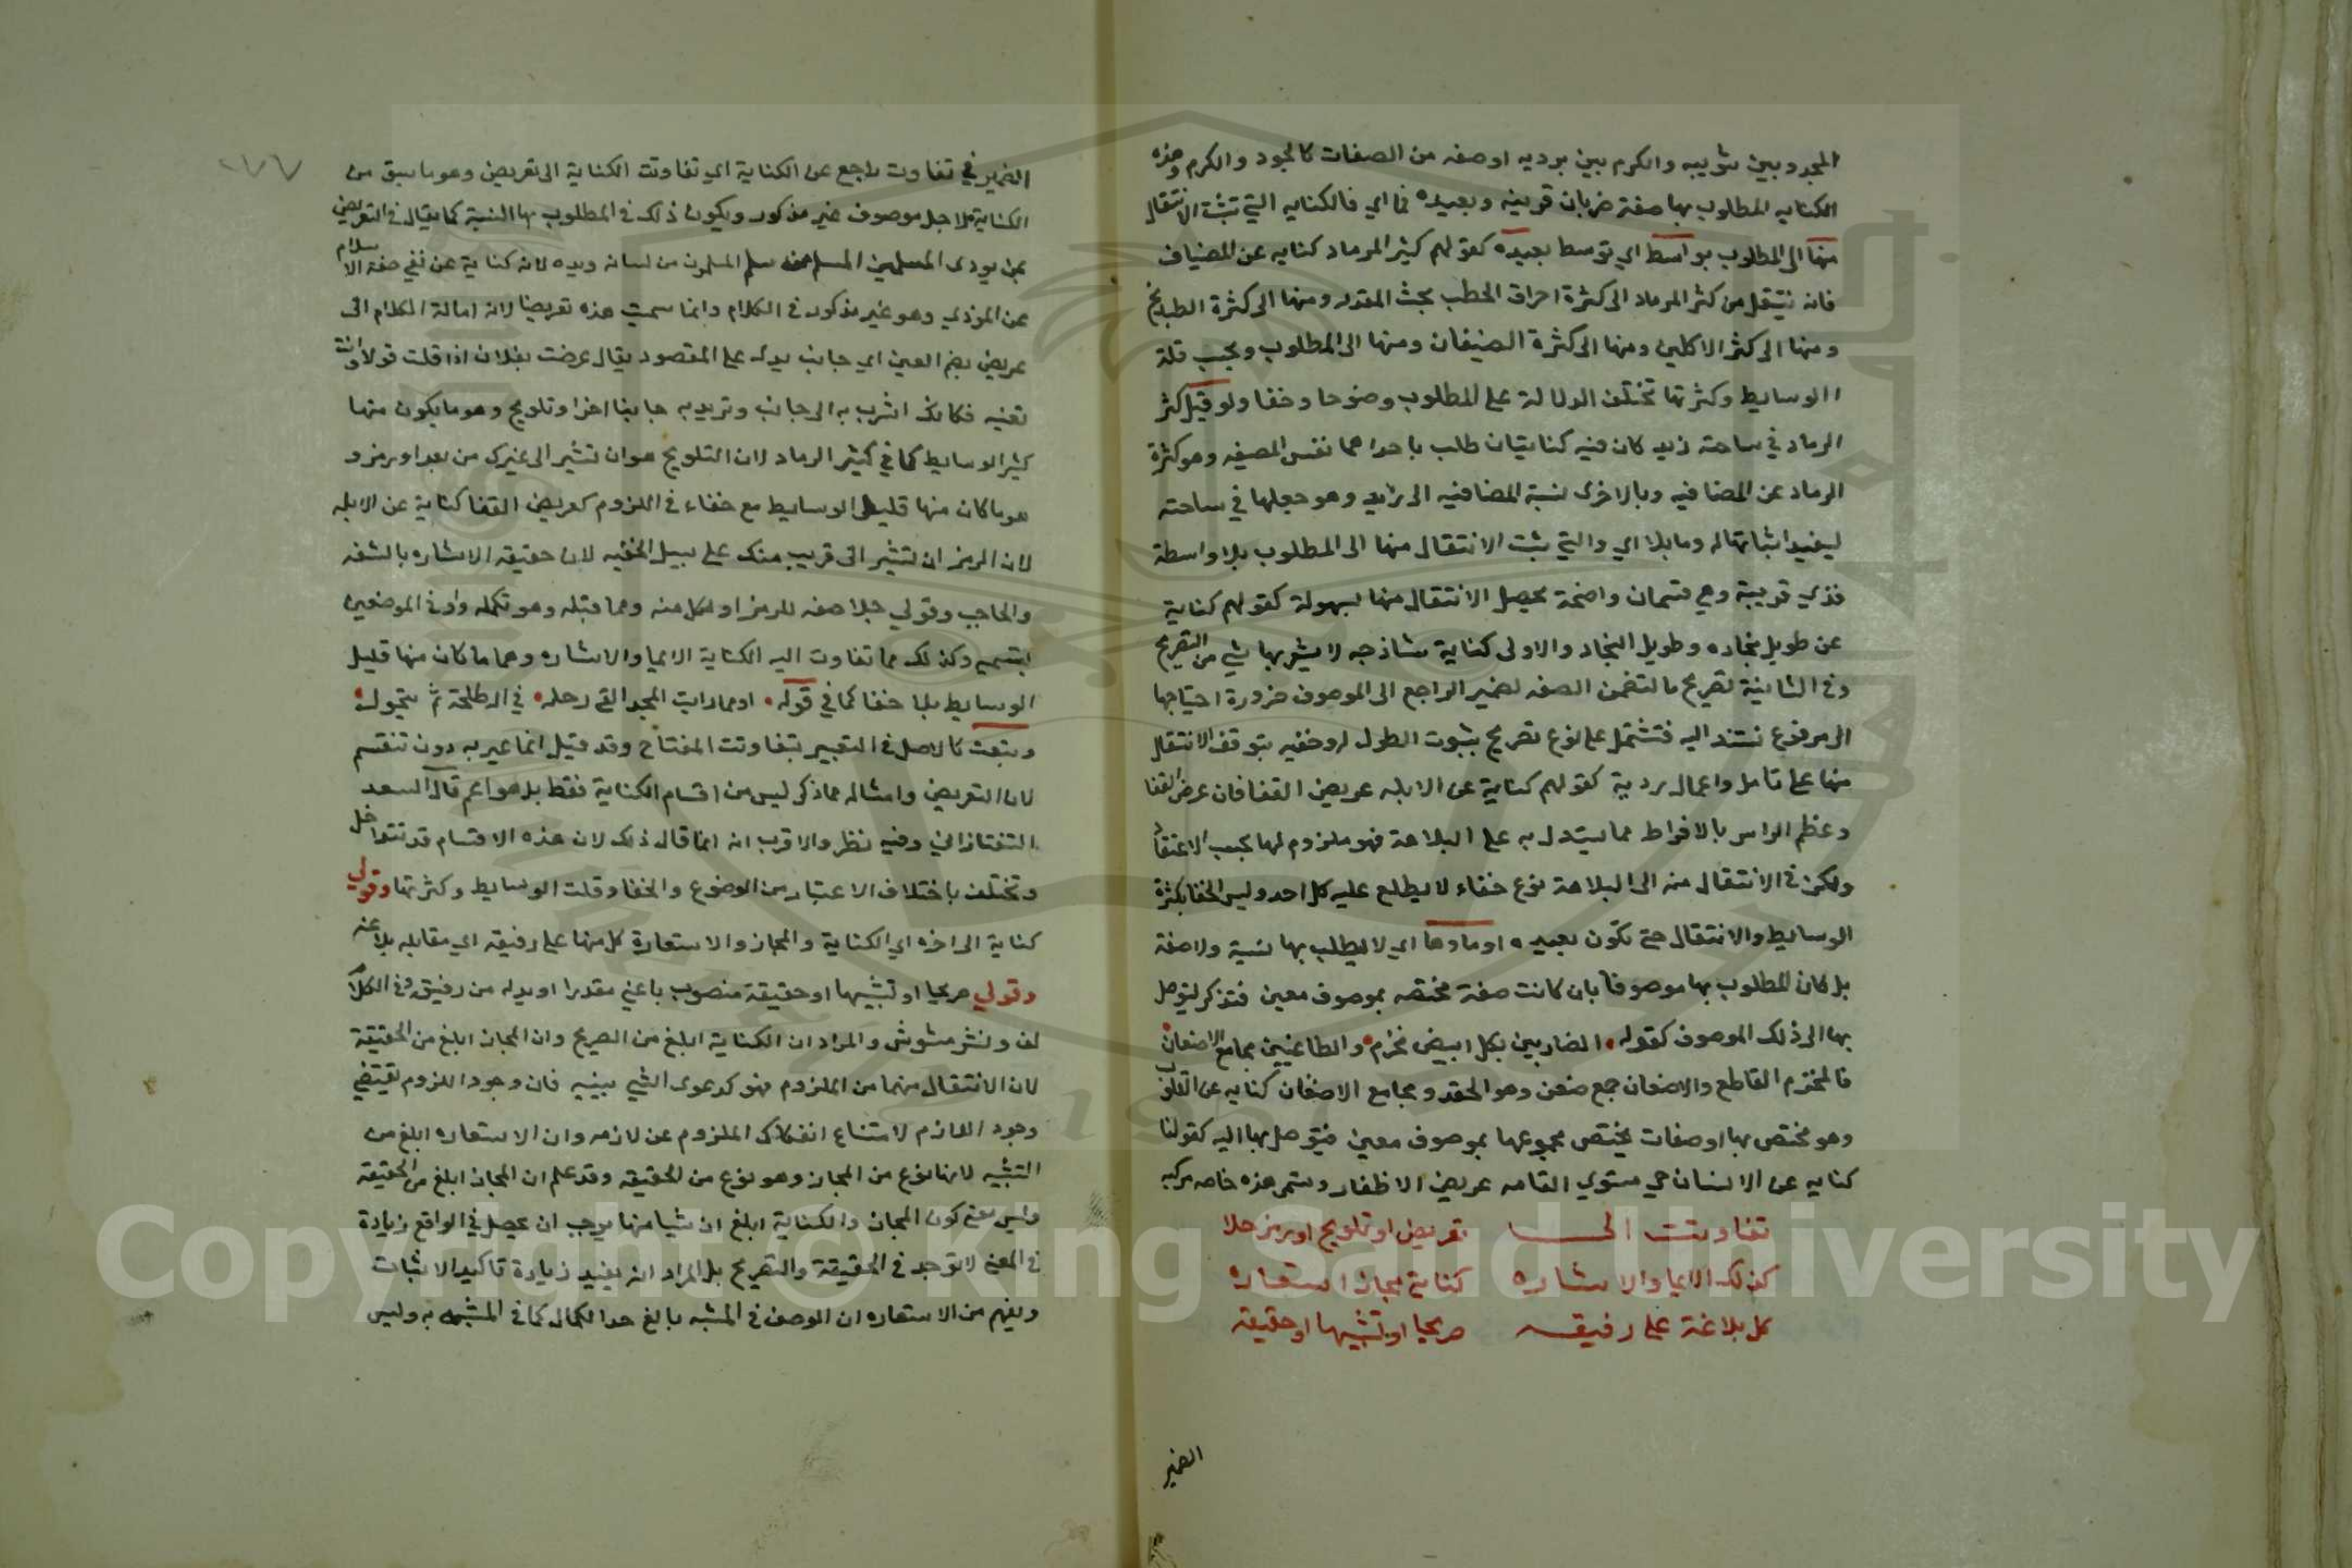 المجد بين ثوبيه والكرم بين برديه او صفه من الصفات كالجود والكرم وهذه
الكنايه المطلوب بها صفة ضربان قريبه وبعيده فما اي فالكنايه التي تثبت الانتقال
منها الى المطلوب بواسط اي توسط بعيده كقولهم كثير الرماد كنايه عن المضياف
فانه ينتقل من كثر الرماد الى كثرة احراق الحطب تحت القدر ومنها الى كثرة الطبايخ
ومنها الى كثر الاكلين ومنها الى كثرة الضيفان ومنها الى المطلوب وبحسب قلة
الوسايط وكثرتها تختلف الدلالة على المطلوب وضوحا وخفا ولو قيل كثر
الرماد في ساحة زيد كان فيه كنايتان طلب باحداهما نفس الصفه وهو كثرة
الرماد عن المضافيه وبالاخرى نسبة المضافيه الى زيد وهو جعلها في ساحته
ليفيد اثباتها له وما بلا اي والتي ثبت الانتقال منها الى المطلوب بلا واسطة
فذي قريبة وهي قسمان واضحة يحصل الانتقال منها بسهولة كقولهم كناية
عن طويل نجاده وطويل النجاد والاولى كناية ساذجه لا يشوبها شي من التصريح
وفي الثانية تصريح ما لتضمن الصفه لضمير الراجع الى الموصوف ضرورة احتياجها
الى مرفوع تستند اليه فتشتمل على نوع تصريح بثبوت الطول له وخفيه يتوقف الانتقال
منها على تامل واعمال روية كقولهم كناية عن الابله عريض القفا فان عرض القفا
وعظم الراس بالافراط مما يستدل به على البلاهة فهو ملزوم لها بحسب الاعتقاد
ولكن في الانتقال منه الى البلاهة نوع خفاء لا يطلع عليه كل احد وليس الخفا بكثرة
الوسايط والانتقال حتى تكون بعيده او ما وها اي لا يطلب بها نسبة ولا صفة
بل كان المطلوب بها موصوفا بان كانت صفة مختصه بموصوف معين فتذكر ليتوصل
بها الى ذلك الموصوف كقوله الضاربين بكل ابيض مخزم والطاعنين مجامع الاضغان
فالمخزم القاطع والاضغان جمع ضغن وهو الحقد ومجامع الاضغان كنايه عن القلوب
وهو مختص بها او صفات يختص مجموعها بموصوف معين فيتوصل بها اليه كقولنا
كنايه عن الانسان حي مستوي القامه عريض الاظفار وتسمى هذه خاصه مركبه
تفاوتت الى تعريض او تلويح او رمز جلا
كذلك الايما والاشاره كناية مجاز استعاره
كل بلاغة على رفيقه صريحا او تشبيها او حقيقه
الضمير
٢٧٧
الضمير في تفاوت راجع عن الكناية اي تفاوتت الكناية الى تعريض وهو ما سيق من
الكناية لاجل موصوف غير مذكور ويكون ذلك في المطلوب بها النسبة كما يقال في التعريض
بمن يوذي المسلمين المسلم من سلم المسلمون من لسانه ويده لانه كناية عن نفي صفة الاسلام
عن الموذي وهو غير مذكور في الكلام وانما سميت هذه تعريضا لانه امالة الكلام الى
عريض بضم العين اي جانب يدل على المقصود يقال عرضت بفلان اذا قلت قولا وانت
تعنيه فكانك اشرت به الى جانب وتريد به جانبا اخر او تلويح وهو ما يكون منها
كثير الوسايط كما في كثير الرماد لان التلويح هو ان تشير الى غيرك من بعد او رمز و
هو ما كان منها قليل الوسايط مع خفاء في اللزوم كعريض القفا كناية عن الابله
لان الرمز ان تشير الى قريب منك على سبيل الخفيه لان حقيقه الاشاره بالشفه
والحاجب وقولي جلا صفه للرمز او لكل منه ومما قبله وهو تكمله واو في الموضعين
لتقسيم وكذلك مما تفاوت اليه الكناية الايما والاشاره وهما ما كان منها قليل
الوسايط بلا خفا كما في قوله او ما رايت المجد القى رحله في ال طلحة ثم لم يتحول
وتبعت كالاصل في التعبير بتفاوتت المفتاح وقد قيل انما عبر به دون تنقسم
لان التعريض وامثاله مما ذكر ليس من اقسام الكناية فقط بل هو اعم قال السعد
التفتازاني وفيه نظر والاقرب انه انما قال ذلك لان هذه الاقسام قد تتداخل
وتختلف باختلاف الاعتبار من الوضوح والخفا وقلت الوسايط وكثرتها وقولي
كناية الى اخره اي الكناية والمجاز والاستعارة كل منها على رفيقه اي مقابله بلاغة
وقولي صريحا او تشبيها او حقيقة منصوب باعني مقدرا او بدل من رفيق وفي الكلام
لف ونشر مشوش والمراد ان الكناية ابلغ من الصريح وان المجاز ابلغ من الحقيقة
لان الانتقال منهما من الملزوم فهو كدعوى الشي ببينه فان وجود الملزوم يقتضي
وجود اللازم لامتناع انفكاك الملزوم عن لازمه وان الاستعاره ابلغ من
التشبيه لانها نوع من المجاز وهو نوع من الحقيقه وقد علم ان المجاز ابلغ من الحقيقه
وليس معنى كون المجاز والكناية ابلغ ان شيا منها يوجب ان يحصل في الواقع زيادة
في المعنى لا توجد في الحقيقة والتصريح بل المراد انه يفيد زيادة تاكيد الاثبات
ويفهم من الاستعاره ان الوصف في المشبه بالغ حد الكمال كما في المشبه به وليس
Copyright © King Saud University